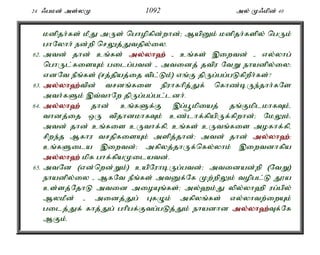 24 ஃபமன் அள்லமு 1092 அல் முஃமின் 40
மனிதர்கள் மீது அருள் பொழிகின்றான்; ஆயினும் மனிதர்களில் பெரும்
பாலோர் நன்றி செலுத்துவதில்லை.
62. அவன் தான் உங்கள் அல்லாஹ் - உங்கள் இறைவன் - எல்லாப்
பொருட்களையும் படைப்பவன் - அவனைத் தவிர வேறு நாயனில்லை;
எனவே நீங்கள் (சத்தியத்தை விட்டும்) எங்கு திருப்பப்படுகிறீர்கள்?
63. அல்லாஹ்வின் வசனங்களை நிராகரித்துக் கொண்டிருந்தார்களே
அவர்களும் இவ்வாறே திருப்பப்பட்டனர்.
64. அல்லாஹ் தான் உங்களுக்கு இப்பூமியைத் தங்குமிடமாகவும்,
வானத்தை ஒரு விதானமாகவும் உண்டாக்கியிருக்கிறான்; மேலும்,
அவன் தான் உங்களை உருவாக்கி, உங்கள் உருவங்களை அழகாக்கி,
சிறந்த ஆகார வசதிகளையும் அளித்தான்; அவன் தான் அல்லாஹ்;
உங்களுடைய இறைவன்; அகிலத்தாருக்கெல்லாம் இறைவனாகிய
அல்லாஹ் மிக பாக்கியமுடையவன்.
65. அவனே (என்றென்றும்) உயிரோடிருப்பவன்; அவனையன்றி (வேறு)
நாயனில்லை - ஆகவே நீங்கள் அவனுக்கே முற்றிலும் வழிபட்டு தூய
உள்ளத்தோடு அவனை அழையுங்கள்; அல்ஹம்து லில்லாஹி ரப்பில்
ஆலமீன் - அனைத்துப் புகழும் அகிலங்கள் எல்லாவற்றையும்
படைத்துக் காத்துப் பரிபக்குவப்படுத்தும் நாயனான அல்லாஹ்வுக்கே
ஆகும்.